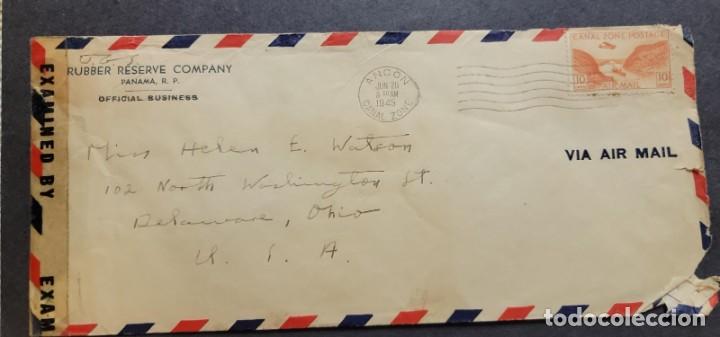 RUBBER RESERVE COMPANY
PANAMA, R. P.
OFFICIAL BUSINESS
EXAMINED BY
EXAM
ANCON
JUN 26
1945
CANAL ZONE
CANAL ZONE POSTAGE
10 10
AIR MAIL
VIA AIR MAIL
Miss Helen E. Watson
102 North Washington St.
Delaware, Ohio
U. S. A.
todocoleccion